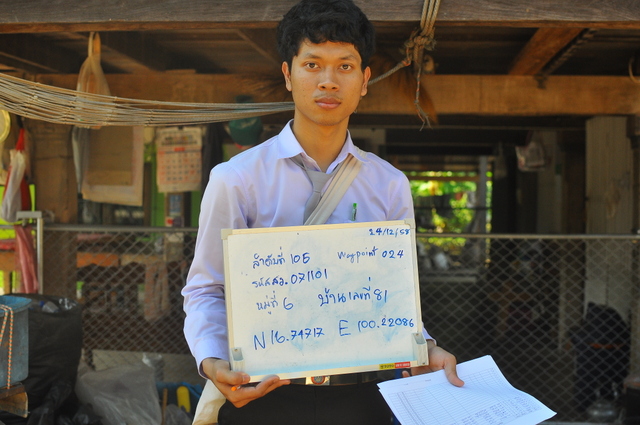 24/12/58
ลำดับที่ 105 Waypoint 024
รหัสสว. 071101
หมู่ที่ 6 บ้านเลขที่ 81
N 16.74717 E 100.22086